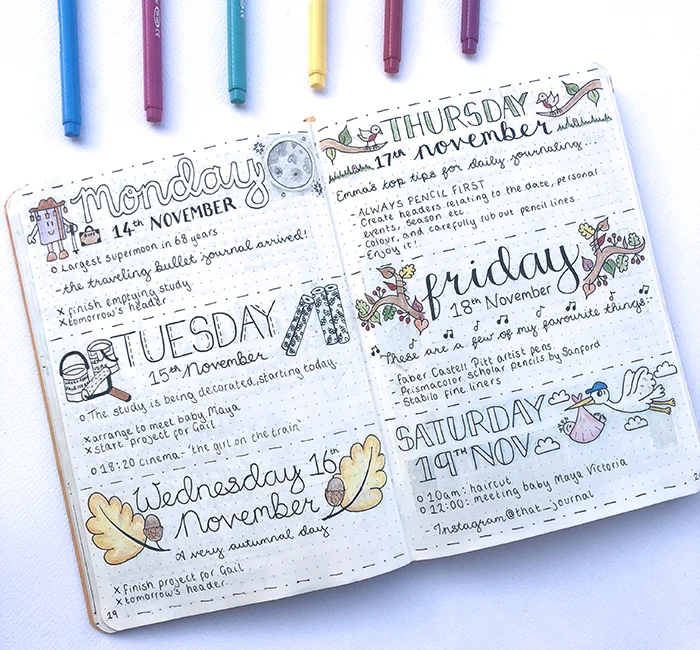 monday
14th NOVEMBER
o Largest supermoon in 68 years
- the traveling bullet journal arrived!
x finish emptying study
x tomorrow's header
TUESDAY
15th November
o The study is being decorated, starting today.
x arrange to meet baby Maya
x start project for Gail
o 18:20 cinema - 'the girl on the train'
Wednesday 16th
November
A very autumnal day
x finish project for Gail
x tomorrow's header.
19
THURSDAY
17th november
Emma's top tips for daily journaling...
- ALWAYS PENCIL FIRST
- Create headers relating to the date, personal
events, season etc.
- Colour, and carefully rub out pencil lines.
- Enjoy it!
friday
18th November
These are a few of my favourite things:-
- Faber Castell Pitt artist pens.
- Prismacolor scholar pencils by Sanford
- Stabilo fine liners
SATURDAY
19TH NOV
o 10am: haircut
o 12:00: meeting baby Maya Victoria
- Instagram@that_journal